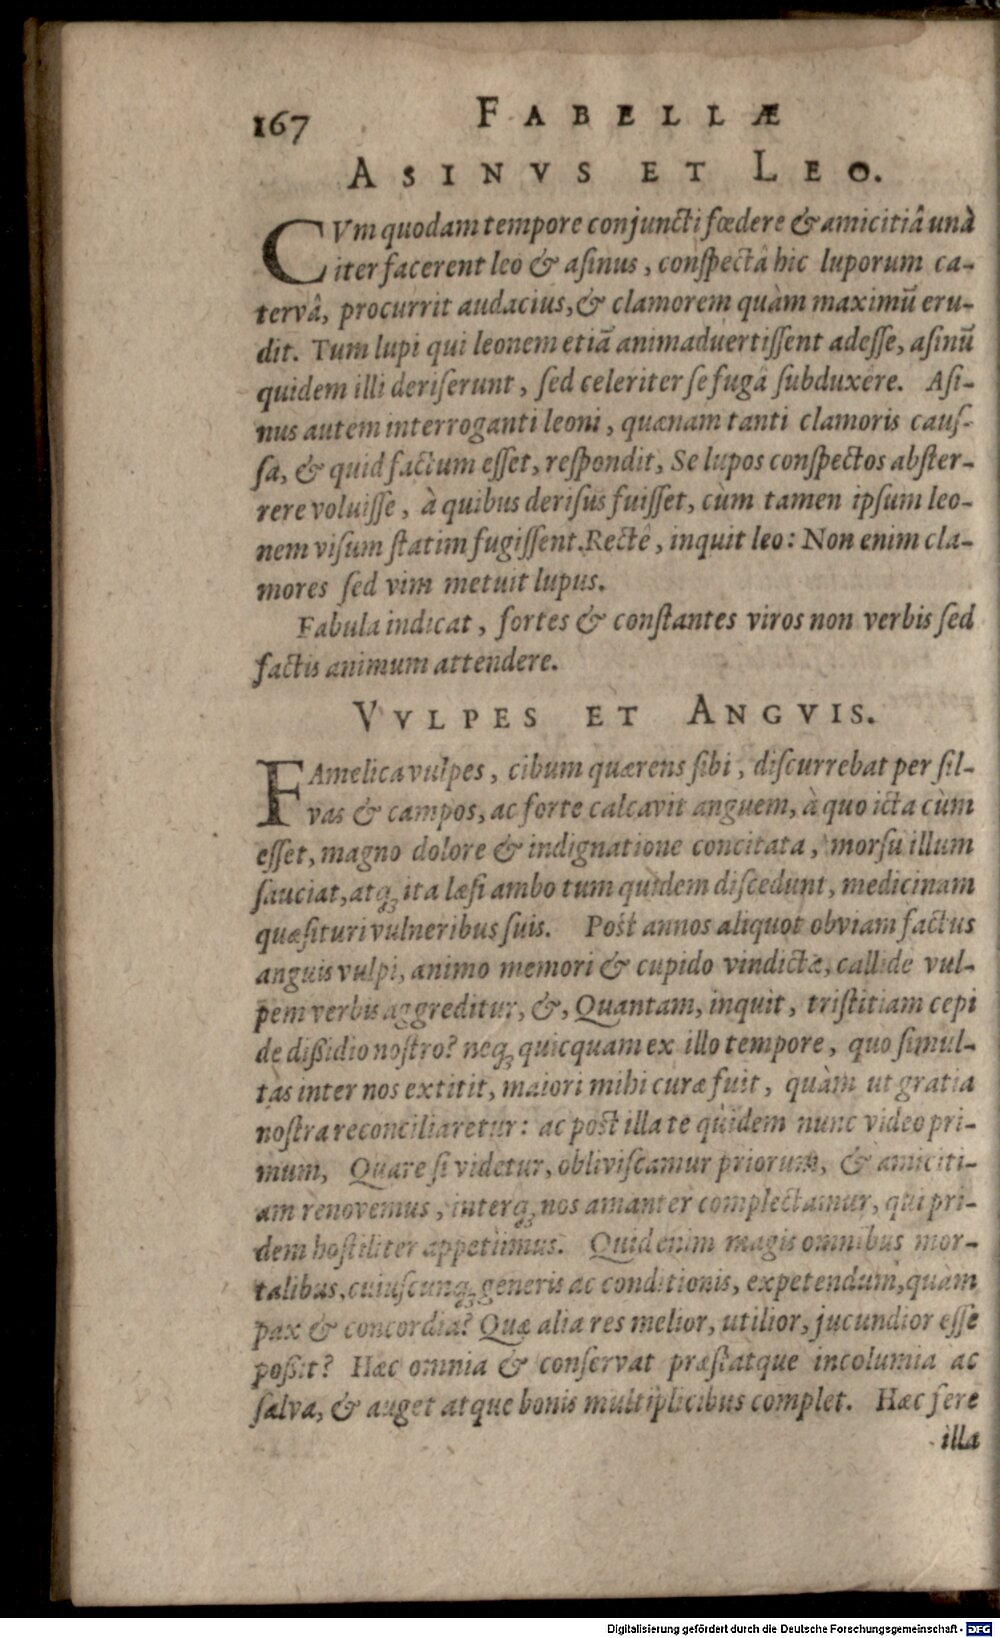 167 FABELLÆ
ASINVS ET LEO.
CVm quodam tempore conjuncti fœdere & amicitiâ unà
iter facerent leo & asinus, conspectâ hic luporum ca-
tervâ, procurrit audacius, & clamorem quàm maximũ eru-
dit. Tum lupi qui leonem etiã animadvertissent adesse, asinũ
quidem illi deriserunt, sed celeriter se fugâ subduxêre. Asi-
nus autem interroganti leoni, quænam tanti clamoris caus-
sa, & quid factum esset, respondit, Se lupos conspectos abster-
rere voluisse, à quibus derisus fuisset, cùm tamen ipsum leo-
nem visum statim fugissent. Rectè, inquit leo: Non enim cla-
mores sed vim metuit lupus.
Fabula indicat, fortes & constantes viros non verbis sed
factis animum attendere.
VVLPES ET ANGVIS.
FAmelica vulpes, cibum quærens sibi, discurrebat per sil-
vas & campos, ac forte calcavit anguem, à quo icta cùm
esset, magno dolore & indignatione concitata, morsu illum
sauciat, atq; ita læsi ambo tum quidem discedunt, medicinam
quæsituri vulneribus suis. Post annos aliquot obviam factus
anguis vulpi, animo memori & cupido vindictæ, callide vul-
pem verbis aggreditur, &, Quantam, inquit, tristitiam cepi
de dißidio nostro? neq; quicquam ex illo tempore, quo simul-
tas inter nos extitit, maiori mihi curæ fuit, quàm ut gratia
nostra reconciliaretur: ac post illa te quidem nunc video pri-
mum, Quare si videtur, obliviscamur priorum, & amiciti-
am renovemus, interq; nos amanter complectamur, qui pri-
dem hostiliter appetiimus. Quid enim magis omnibus mor-
talibus, cuiuscunq; generis ac conditionis, expetendum, quàm
pax & concordia? Quæ alia res melior, utilior, jucundior esse
poßit? Hæc omnia & conservat præstatque incolumia ac
salva, & auget atque bonis multiplicibus complet. Hæc fere
illa
Digitalisierung gefördert durch die Deutsche Forschungsgemeinschaft - DFG